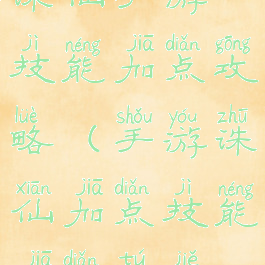 诛仙手游
jì néng jiā diǎn gōng
技能加点攻
lüè shǒu yóu zhū
略(手游诛
xiān jiā diǎn jì néng
仙加点技能
jiā diǎn tú jiě